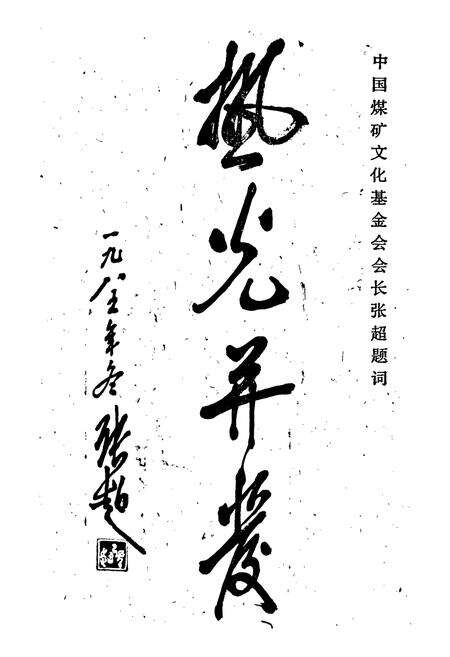 中国煤矿文化基金会会长张超题词
熱光并發
一九八五年冬
张超